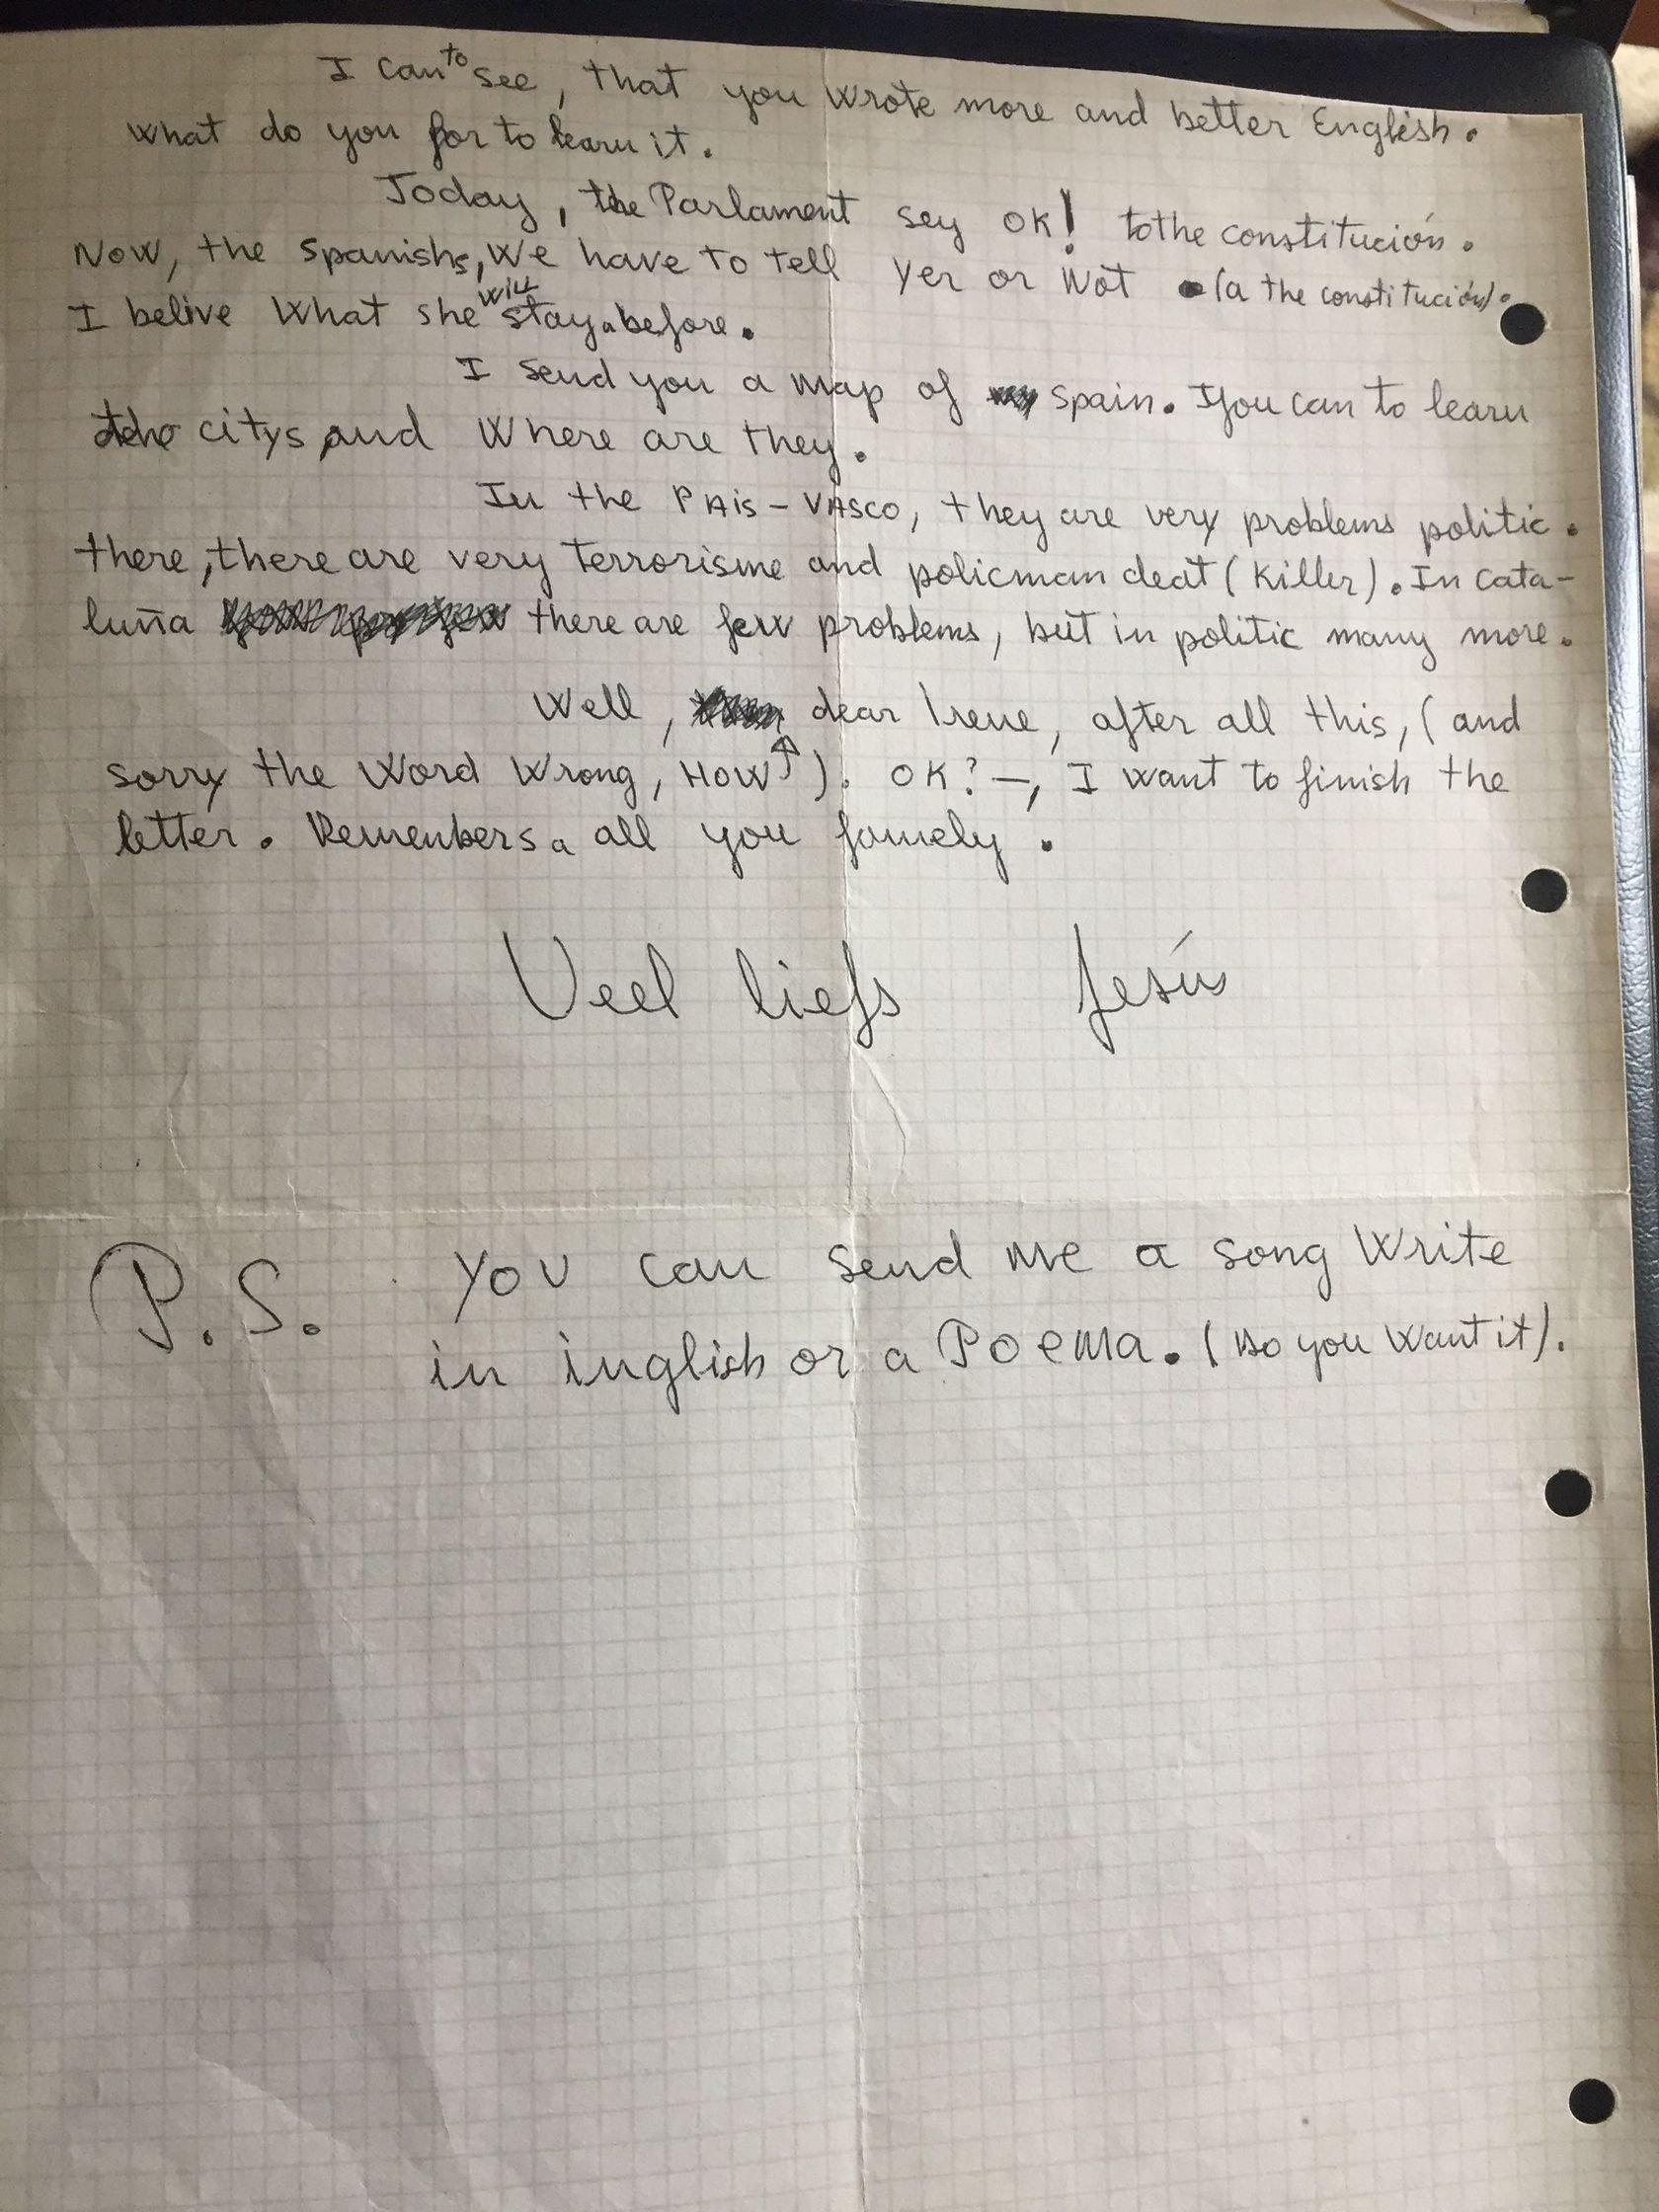 I can to see, that you wrote more and better English.
what do you for to learn it.
Today, the Parlament sey OK! to the constitución.
Now, the Spanishs, we have to tell Yer or Not (a the constitución).
I belive what she will stay before.
I send you a map of Spain. If you can to learn
citys and where are they.
In the PAis-VAsco, they are very problems politic.
there, there are very terrorisme and policman deat (killer). In Cata-
luña there are few problems, but in politic many more.
Well, dear Irene, after all this, (and
sorry the word wrong, HOW ↑). OK? -, I want to finish the
letter. Remenbers a all you famely.
Veel liefs Jesús
P.S. YOU can send me a song write
in inglish or a Poema. (Do you want it).